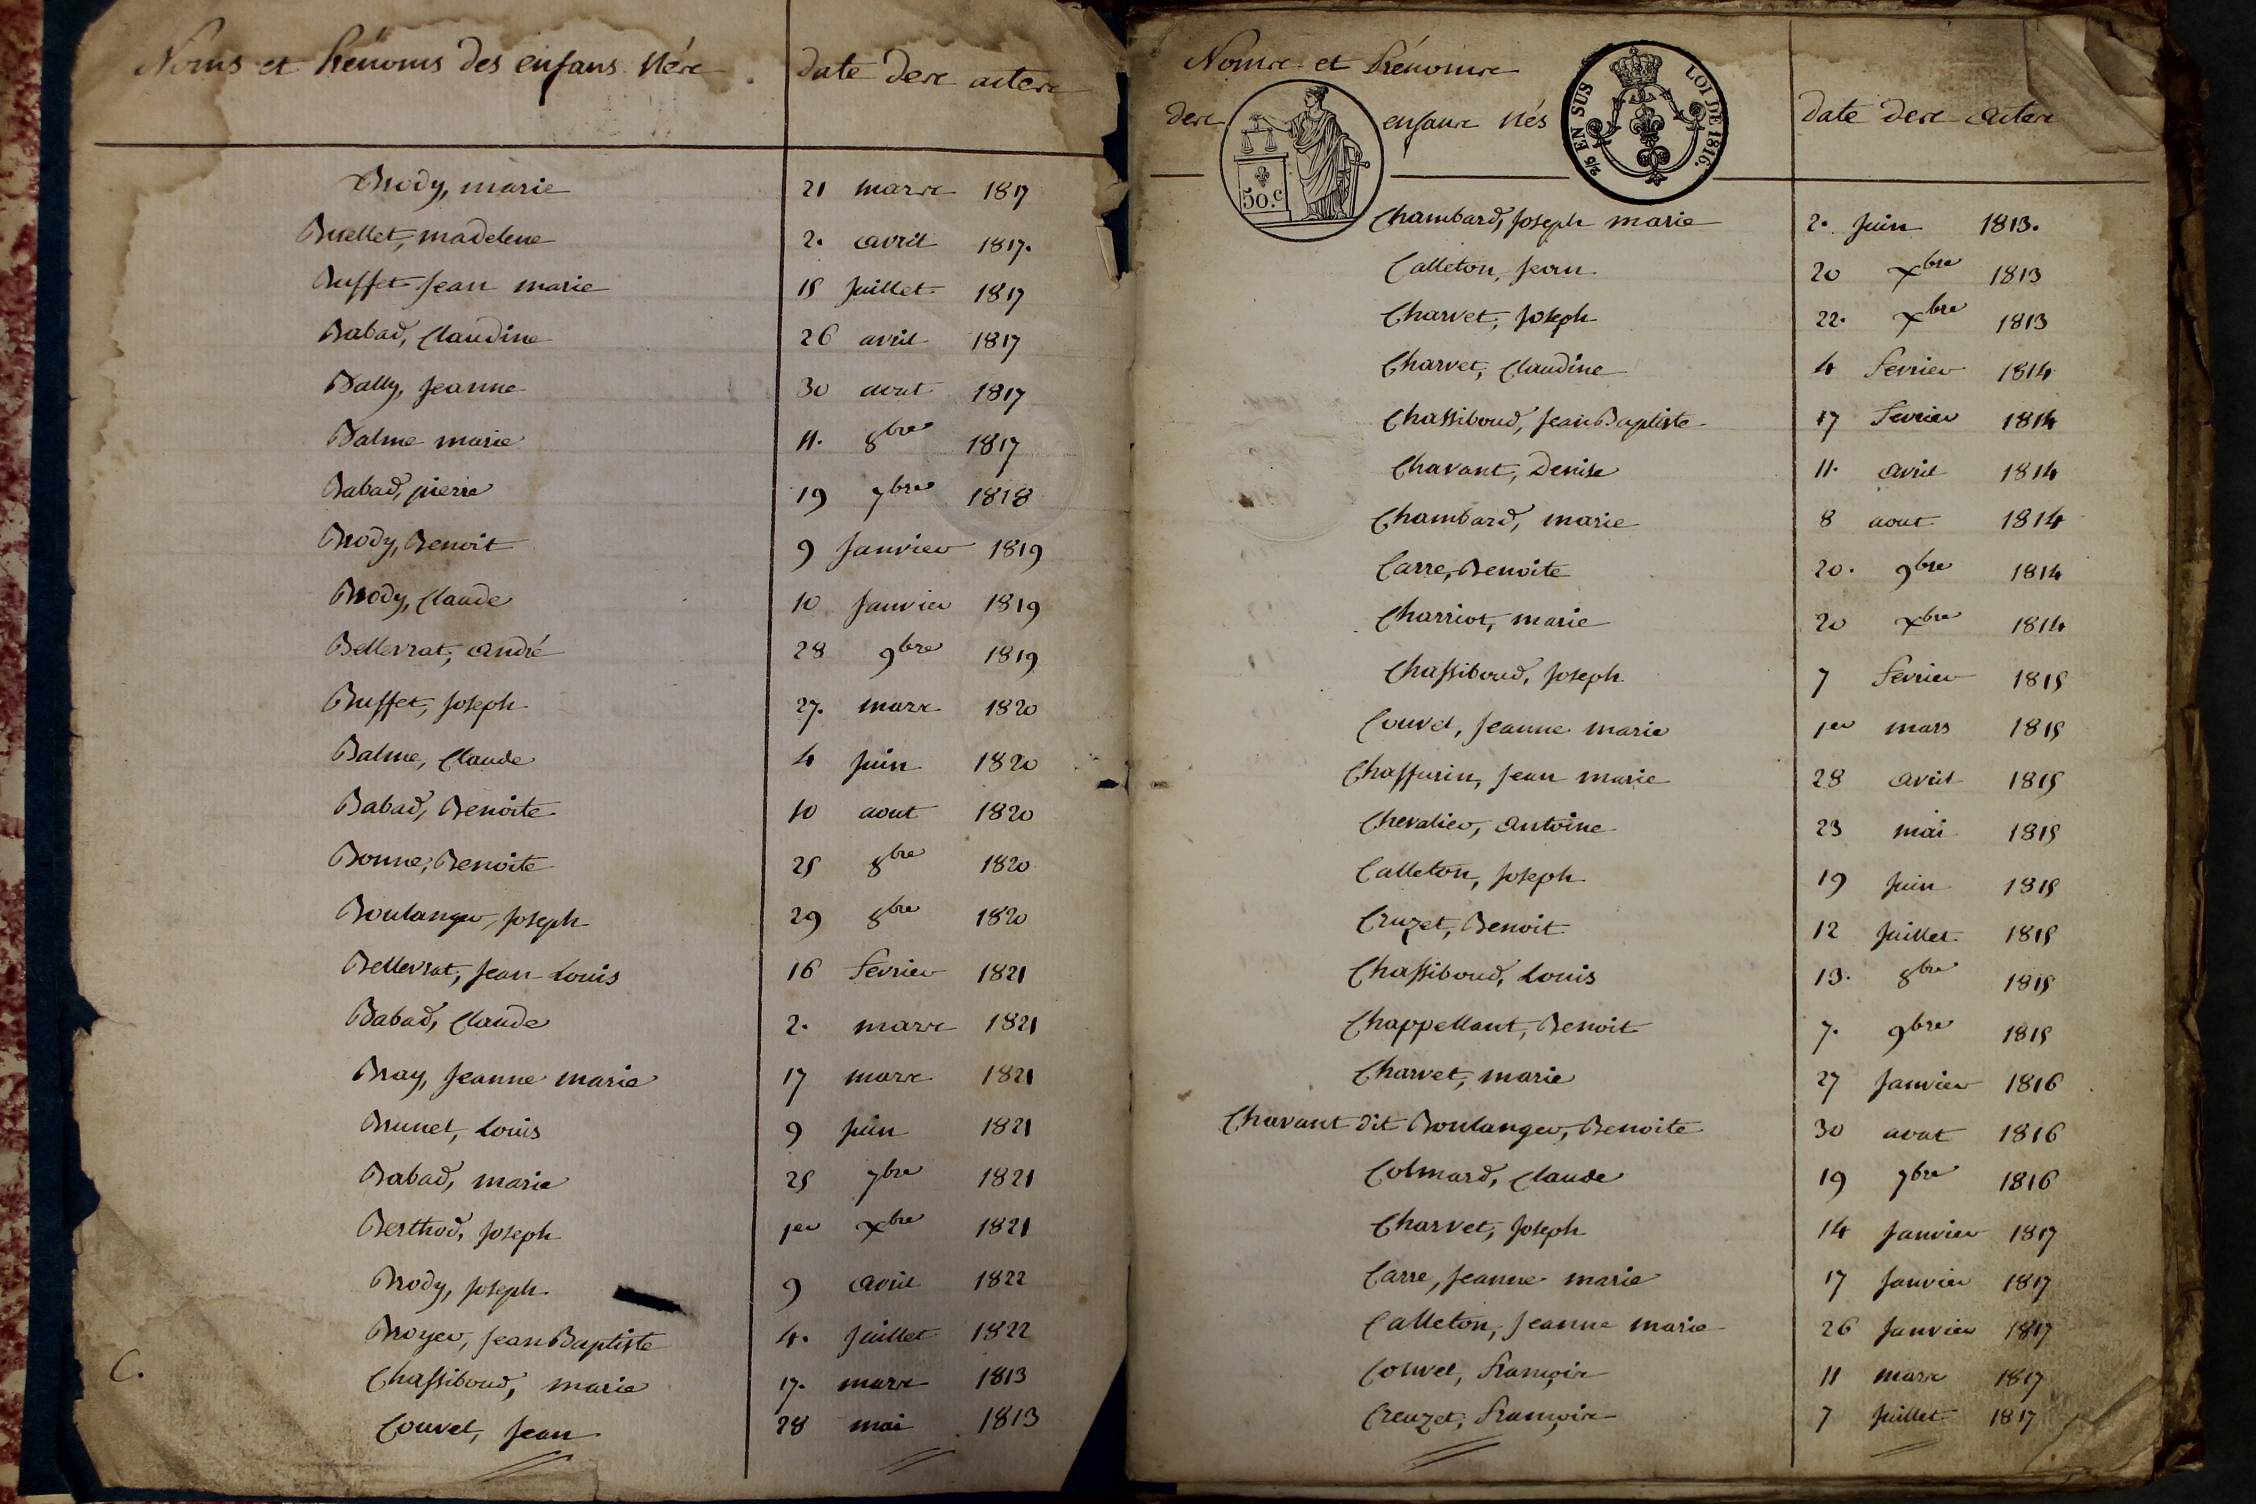 Noms et Prénoms des enfans Nés
date des actes
Brody, marie 21 mars 1817
Buellet, madelene 2. avril 1817.
Buffet Jean marie 15 Juillet 1817
Babad, Claudine 26 avril 1817
Bally, Jeanne 30 aout 1817
Balme marie 11. 8bre 1817
Babad, pierre 19 7bre 1818
Brody, Benoit 9 Janvier 1819
Brody, Claude 10 Janvier 1819
Bellevrat, andré 28 9bre 1819
Buffet, Joseph 27. mars 1820
Balme, Claude 4 Juin 1820
Babad, Benoite 10 aout 1820
Bonne, Benoite 25 8bre 1820
Boulanger, Joseph 29 8bre 1820
Bellevrat, Jean Louis 16 fevrier 1821
Babad, Claude 2. mars 1821
Bray, Jeanne marie 17 mars 1821
Brunet, Louis 9 Juin 1821
Babad, marie 25 7bre 1821
Berthod, Joseph 1er Xbre 1821
Brody, Joseph. 9 avril 1822
Broyer, Jean Baptiste 4. Juillet 1822
C. Chassiboud, marie 17. mars 1813
Couvel, Jean 28 mai 1813
Noms et Prénoms
des enfans Nés
date des actes
50.c
2/5 EN SUS LOI DE 1816.
Chambard, Joseph marie 2. Juin 1813.
Calleton, Jean 20 Xbre 1813
Charvet, Joseph 22. Xbre 1813
Charvet, Claudine 4 fevrier 1814
Chassiboud, Jean Baptiste 17 fevrier 1814
Chavant, Denise 11. avril 1814
Chambard, marie 8 aout 1814
Carre, Benoite 20. 9bre 1814
Charriot, marie 20 Xbre 1814
Chassiboud, Joseph 7 fevrier 1815
Couvel, Jeanne marie 1er mars 1815
Chaffurin, Jean marie 28 avril 1815
Chevalier, antoine 23 mai 1815
Calleton, Joseph 19 Juin 1815
Cruzet, Benoit 12 Juillet 1815
Chassiboud, Louis 13. 8bre 1815
Chappellant, Benoit 7. 9bre 1815
Charvet, marie 27 Janvier 1816
Chavant dit Boulanger, Benoite 30 aout 1816
Colmard, Claude 19 7bre 1816
Charvet, Joseph 14 Janvier 1817
Carre, Jeanne marie 17 Janvier 1817
Calleton, Jeanne marie 26 Janvier 1817
Couvel, françois 11 mars 1817
Creuzet, françois 7 Juillet 1817